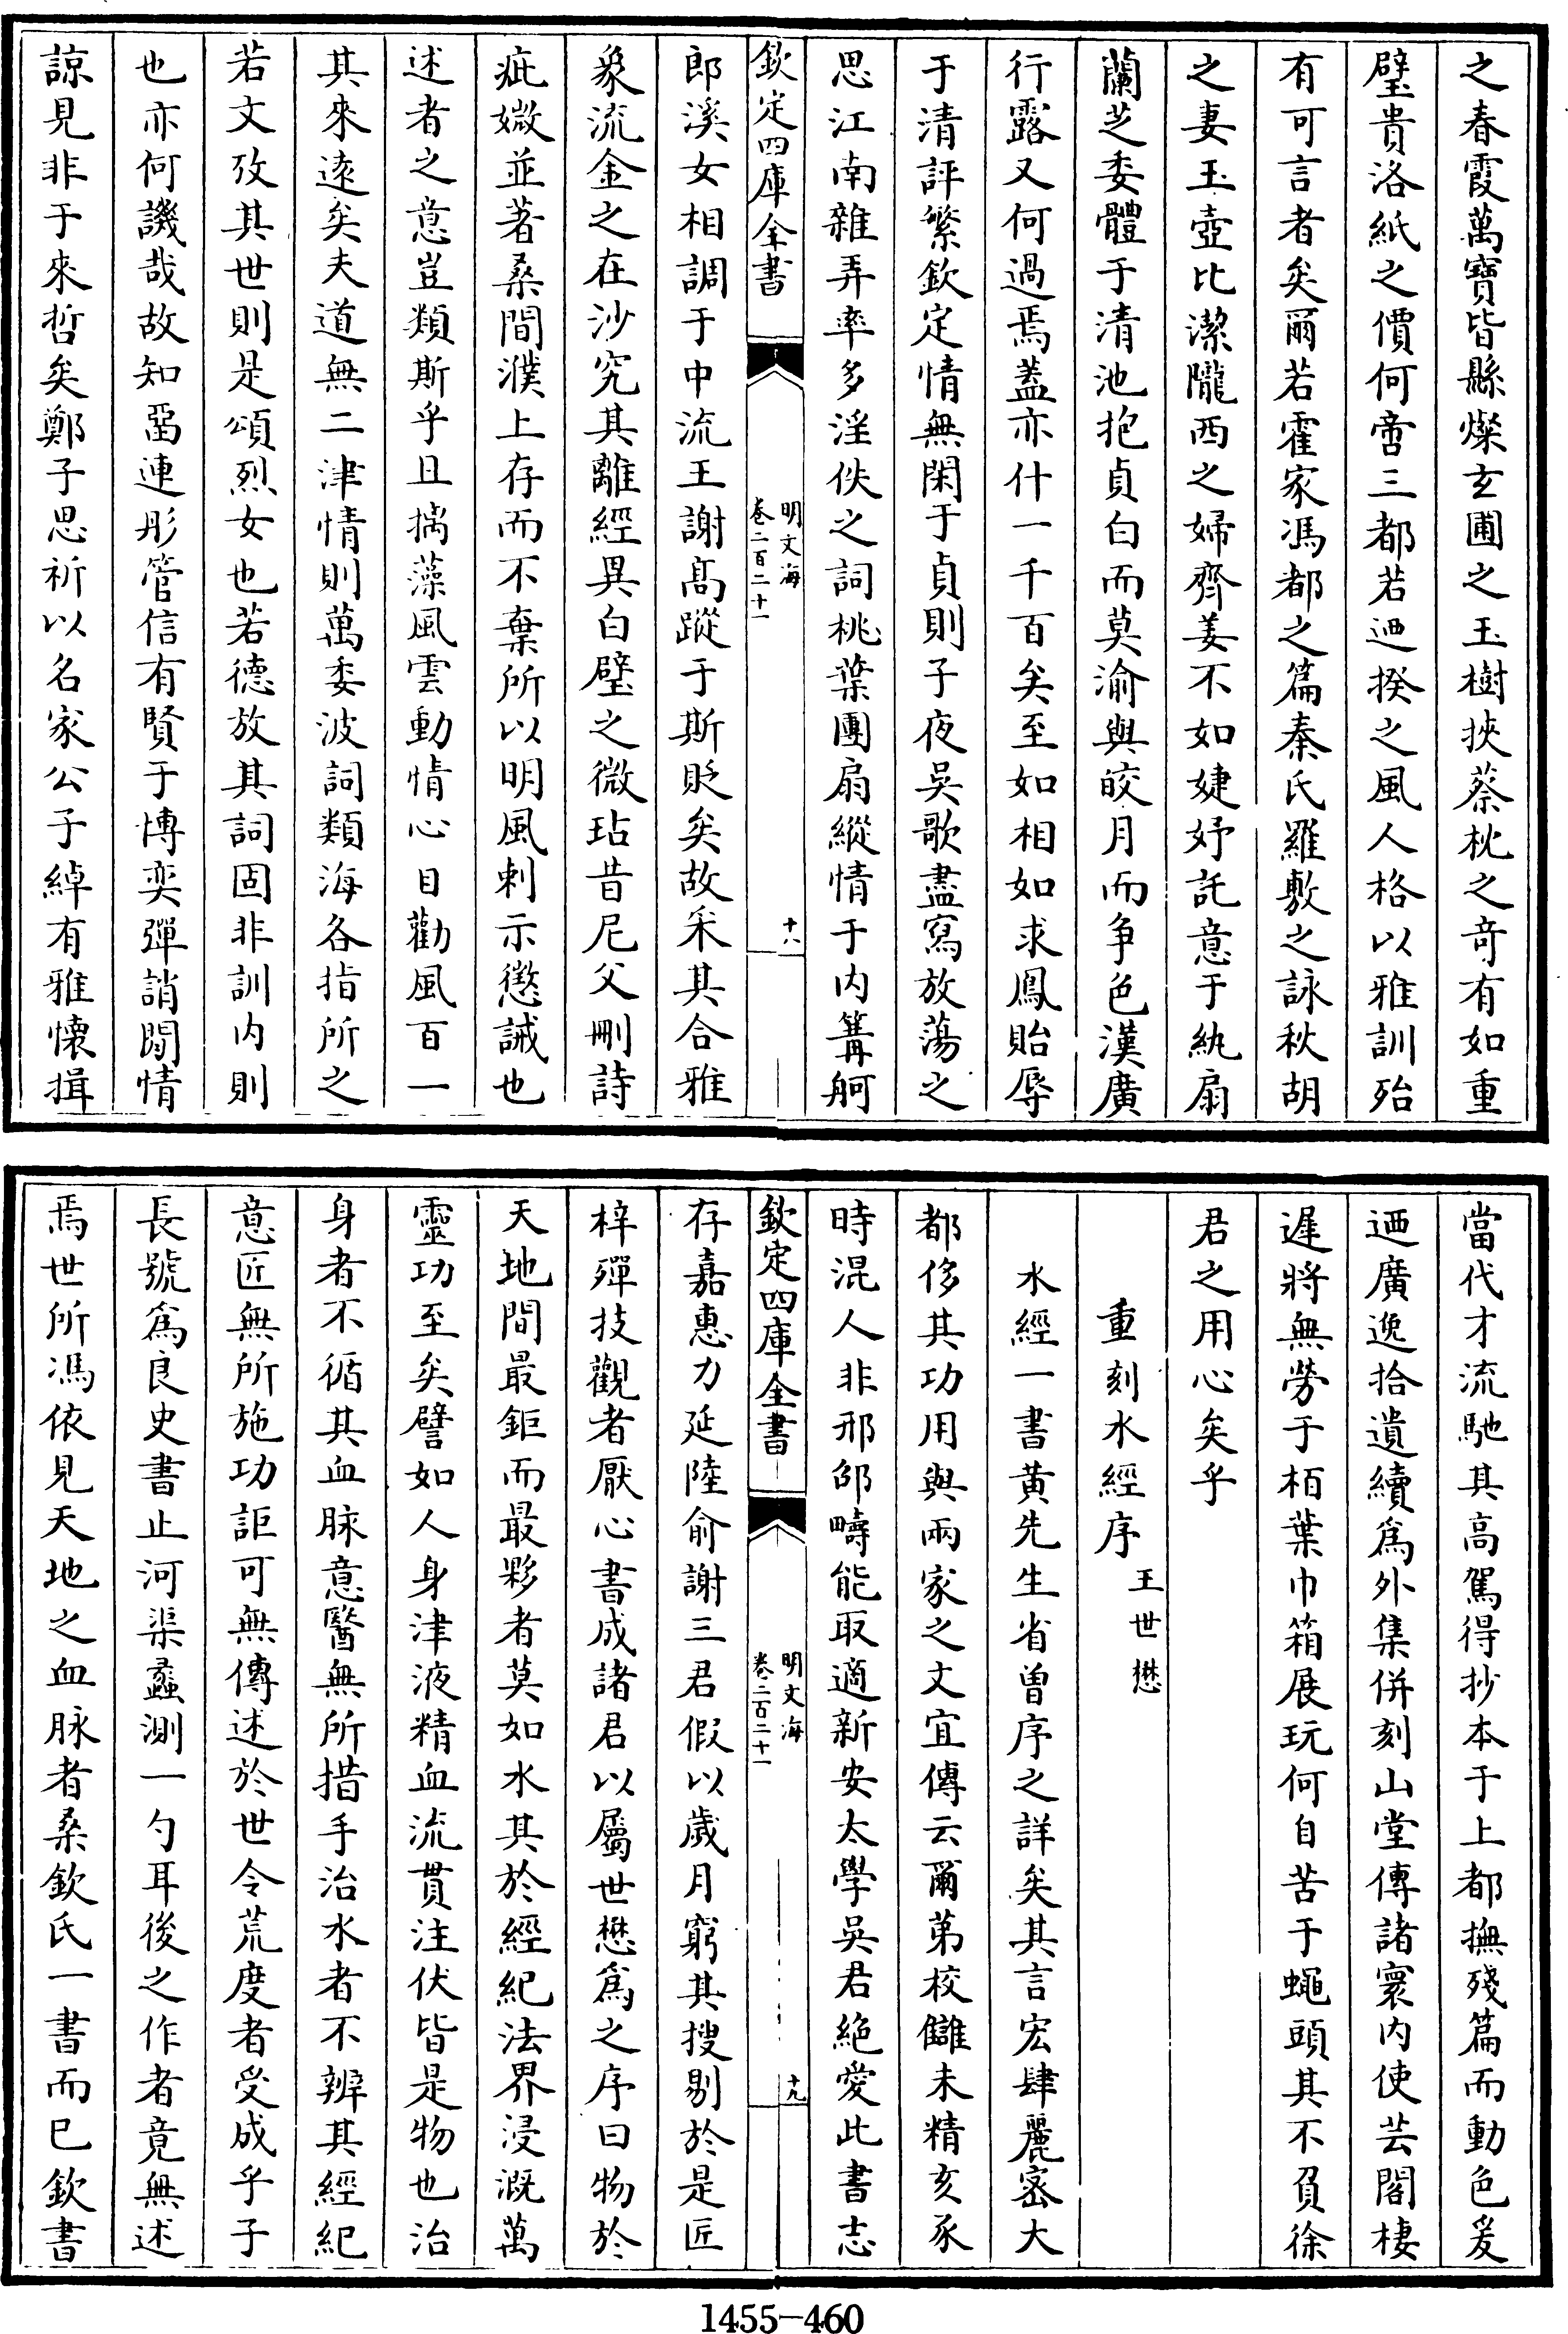 之春霞萬寶皆縣燦玄圃之玉樹挾蔡枕之竒有如重
璧貴洛紙之價何啻三都若迺揆之風人格以雅訓殆
有可言者矣爾若霍家馮都之篇秦氏羅敷之詠秋胡
之妻玉壺比潔隴西之婦齊姜不如婕妤託意于紈扇
蘭芝委體于清池抱貞白而莫渝與皎月而争色漢廣
行露又何過焉蓋亦什一千百矣至如相如求鳳貽辱
于清評繁欽定情無閑于貞則子夜吳歌盡寫放蕩之
思江南雜弄率多淫佚之詞桃葉團扇縱情于内篝舸
欽定四庫全書
明文海
卷二百二十一
十八
郎溪女相調于中流王謝髙蹤于斯貶矣故采其合雅
衆流金之在沙究其離經異白璧之微玷昔尼父刪詩
疵媺並著桑間濮上存而不棄所以明風刺示懲誡也
述者之意豈類斯乎且摛藻風雲動情心目勸風百一
其來遠矣夫道無二津情則萬委波詞類海各指所之
若文攷其世則是頌烈女也若德放其詞固非訓内則
也亦何譏哉故知啚連彤管信有賢于博奕彈誚閲情
諒見非于來哲矣鄭子思祈以名家公子綽有雅懷揖
當代才流馳其高駕得抄本于上都撫殘篇而動色爰
迺廣逸拾遺續為外集併刻山堂傳諸寰内使芸閣棲
遲將無勞于栢葉巾箱展玩何自苦于蠅頭其不負徐
君之用心矣乎
重刻水經序 王世懋
水經一書黄先生省曽序之詳矣其言宏肆麗宻大
都侈其功用與兩家之文宜傳云爾第校讎未精亥豕
時混人非邢邵疇能取適新安太學吳君絶愛此書志
欽定四庫全書
明文海
卷二百二十一
十九
存嘉惠力延陸俞謝三君假以歲月窮其搜剔於是匠
梓殫技觀者厭心書成諸君以屬世懋為之序曰物於
天地間最鉅而最夥者莫如水其於經紀法界浸溉萬
靈功至矣譬如人身津液精血流貫注伏皆是物也治
身者不循其血脉意醫無所措手治水者不辨其經紀
意匠無所施功詎可無傳述於世令荒度者受成乎子
長號為良史書止河渠蠡測一勺耳後之作者竟無述
焉世所馮依見天地之血脉者桑欽氏一書而已欽書
1455-460